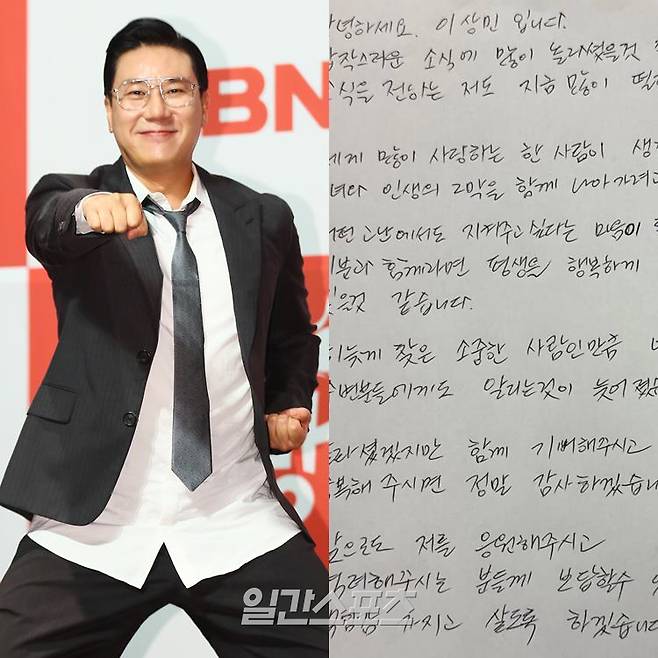 BN
일간스포츠
녕하세요. 이상민 입니다.
갑작스러운 소식에 많이 놀라셨을것
소식을 전하는 저도 지금 많이
에게 많이 사랑하는 한 사람이
인생의 2막을 함께 나아가려고
떤 고난에서도 지켜주고 싶다는 마음이
분과 함께라면 평생을 행복하게
있을것 같습니다.
늦게 찾은 소중한 사람인만큼
주변분들에게도 알리는것이 늦어
라셨겠지만 함께 기뻐해주시고
축복해 주시면 정말 감사하겠습니
앞으로도 저를 응원해주시고
격려해주시는 분들께 보답할수
가지고 살도록 하겠습니다